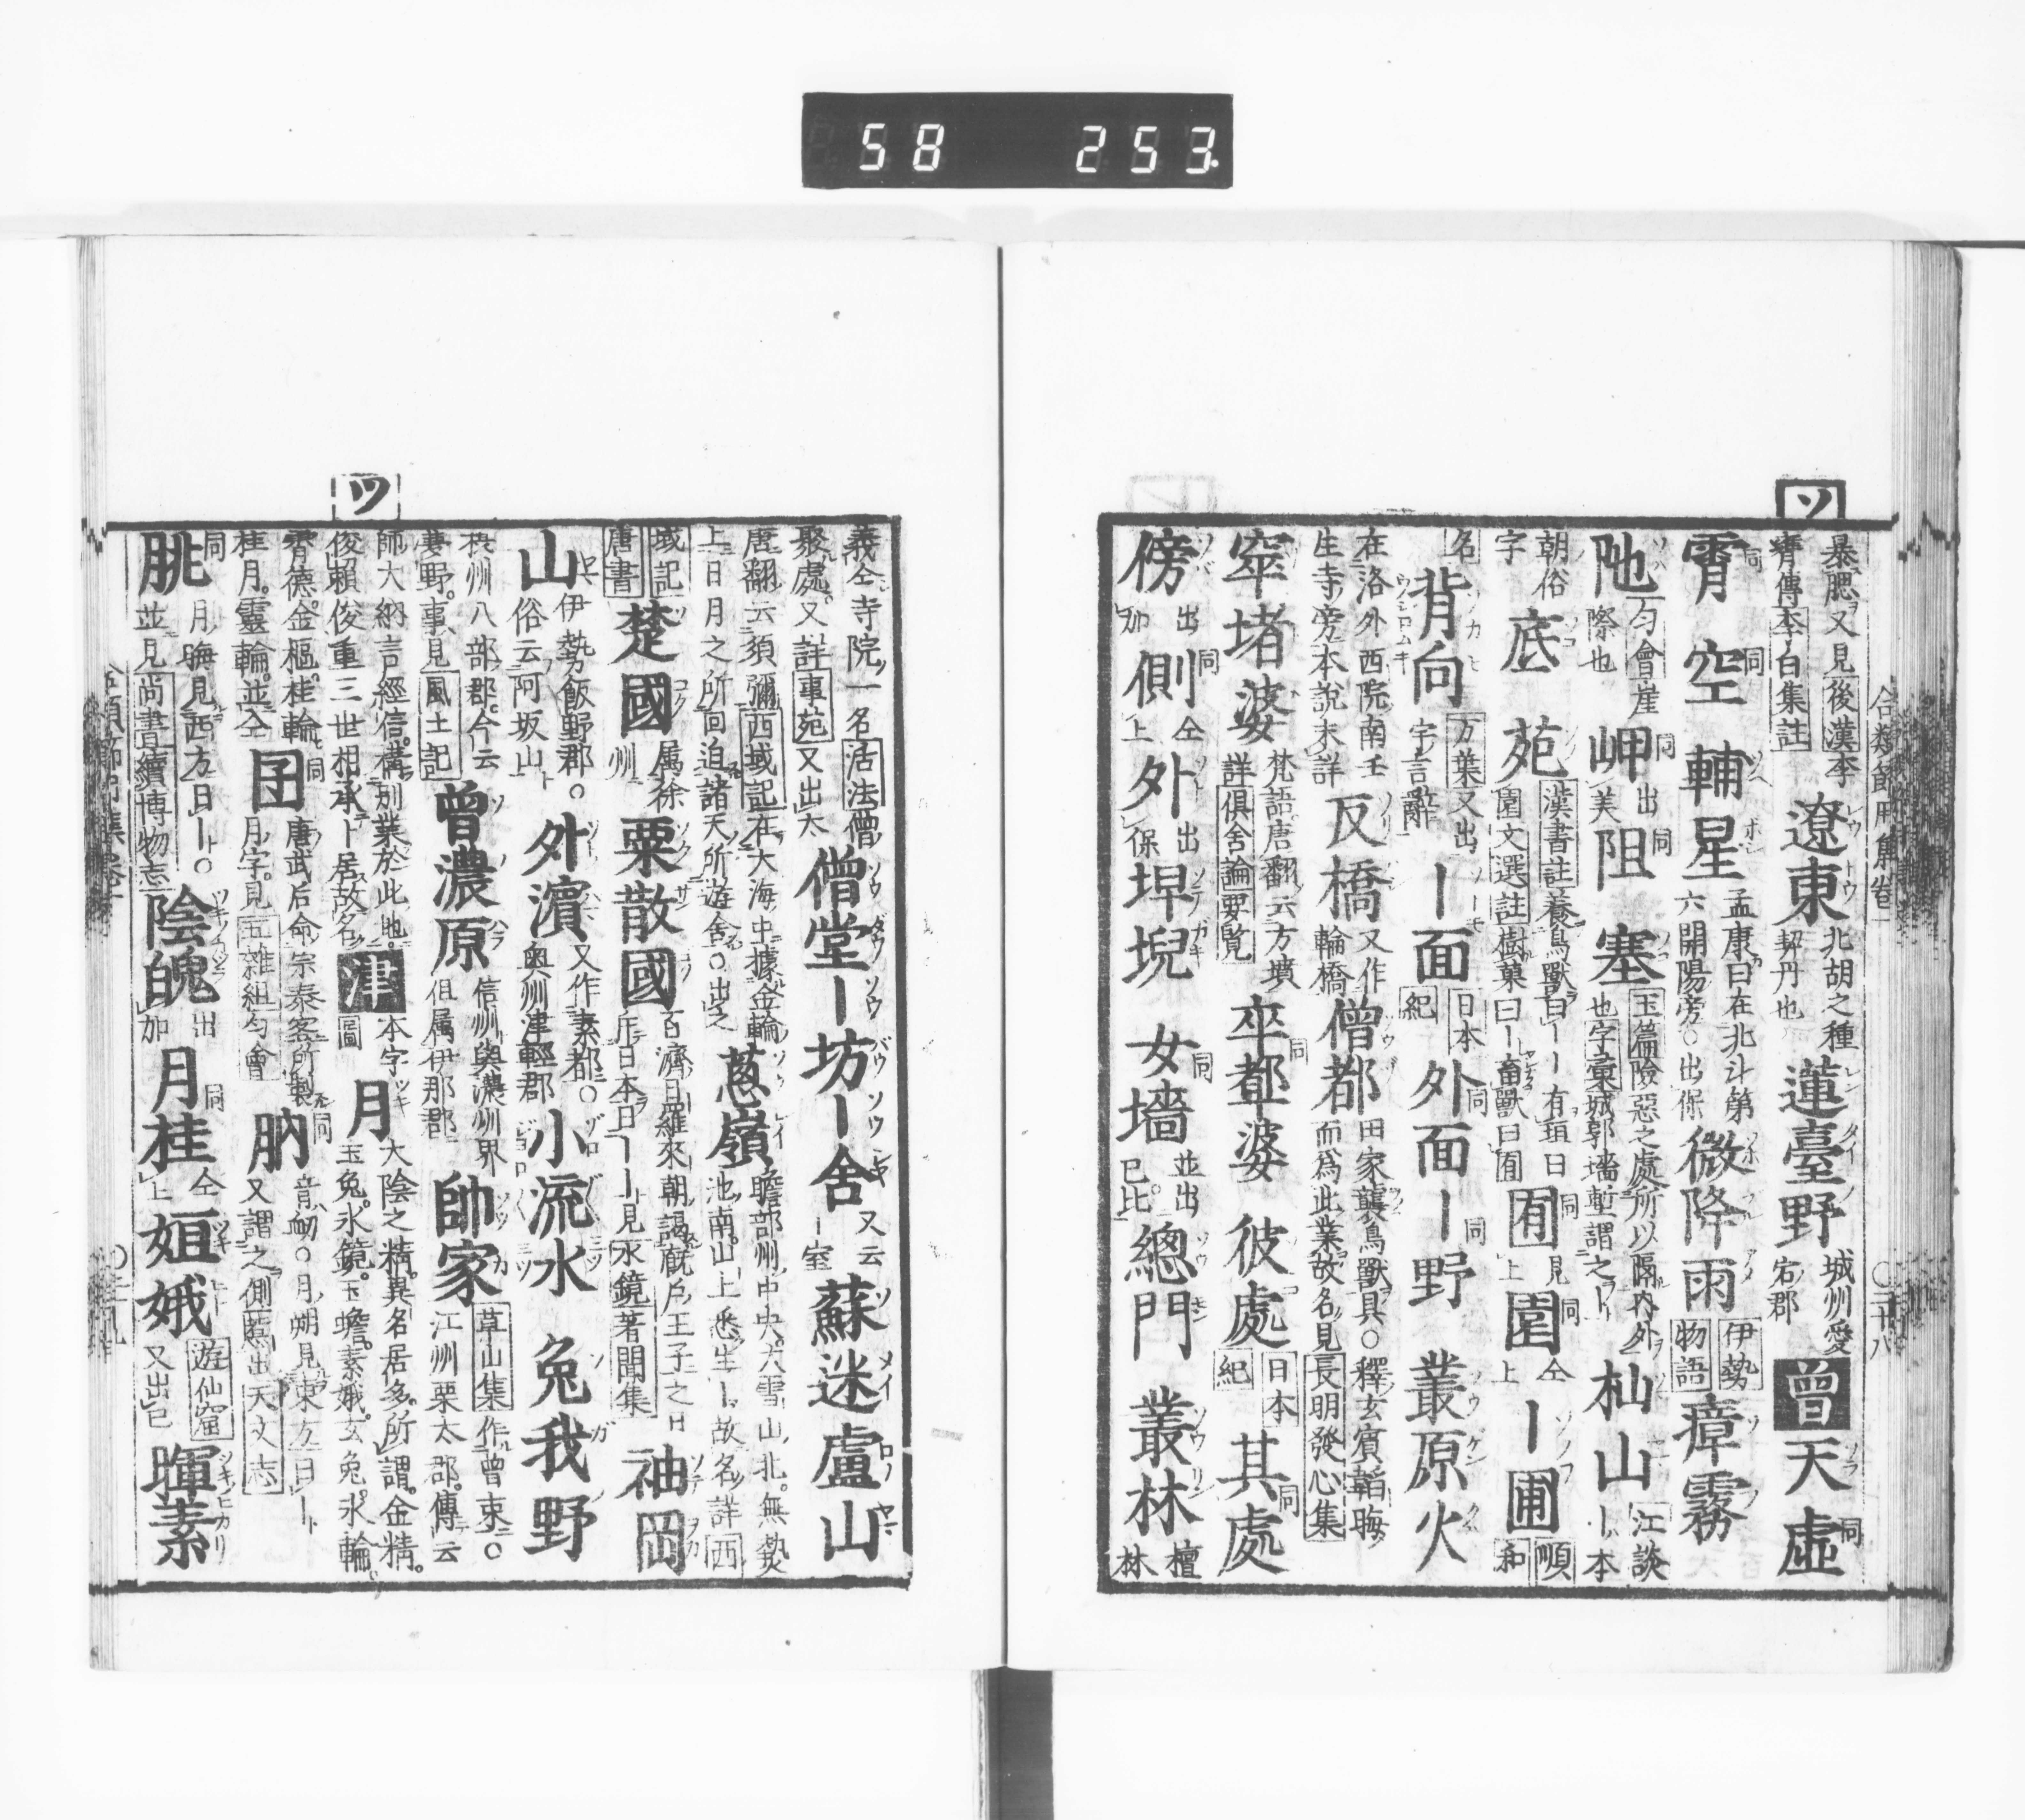 58 253
ソ
暴腮又見後漢李
膺傳李白集註
遼東
北胡之種
契丹也
蓮臺野
城州愛
宕郡
曾
天
虛
霄
空
輔星
孟康曰在北斗第
六開陽旁○出保
微降雨
伊勢
物語
瘴霧
阤
匀會崖
際也
岬
出
美
阻
塞
玉篇險惡之處所以隔内外
也字彙城郭墻塹謂之ー
杣山
江談
ー本
朝俗
字
底
苑
漢書註養鳥獸
園文選註樹菓曰ー畜獸曰囿
囿
見
上
園
仝
上
ー圃
順
和
名
背向
万葉又出
宇言辭
ー面
日本
紀
外面
ー野
叢原火
在洛外西院南壬
生寺旁本說末詳
反橋
又作
輪橋
僧都
田家襲鳥獸具○釋玄賓韜晦
而爲此業故名見長明發心集
窣堵婆
梵語唐翻云方墳
詳俱舍論要覧
卒都婆
彼處
日本
紀
其處
傍
出
加
側
仝
上
外
出
保
埤堄
女墻
並出
已比
總門
叢林
檀
林
合類節用集卷一
義仝寺院一名活法僧
聚處又詳事苑又出太
僧堂ー坊ー舍
又云
ー室
蘇迷盧山
唐翻云須彌西域記在大海中據金輪
上日月之所回迫諸天所遊舍○出之
葱嶺
瞻部州中央六雪山北無熱
池南山上悉生ー故名詳西
域記
唐書
楚國
属徐
州
粟散國
百濟日羅來朝謁厩戶王子之日
斥日本曰ーー見水鏡著聞集
袖岡
山
伊勢飯野郡○
俗云阿坂山
外濱
又作素都○
奥州津輕郡
小流水
兔我野
摂州八部郡今云
夢野事見風土記
曾濃原
信州與濃州界
伹属伊那郡
帥家
草山集作曾束○
江州栗太郡傳云
師大納言經信構別業於此地
俊賴俊重三世相承ー居故名
ツ
津
本字
圖
月
大陰之精異名居多所謂金精
玉兔氷鏡玉蟾素娥玄兔氷輪
霄德金樞桂輪
桂月靈輪並仝
囝
唐武后命宗秦客所製
月字見五雜組匀會
朒
音衂○月朔見東方曰ー
又謂之側慝出天文志
朓
月晦見西方曰ー○
並見尚書續博物志
陰魄
出
加
月桂
仝
上
姮娥
遊仙窟
又出已
暉素